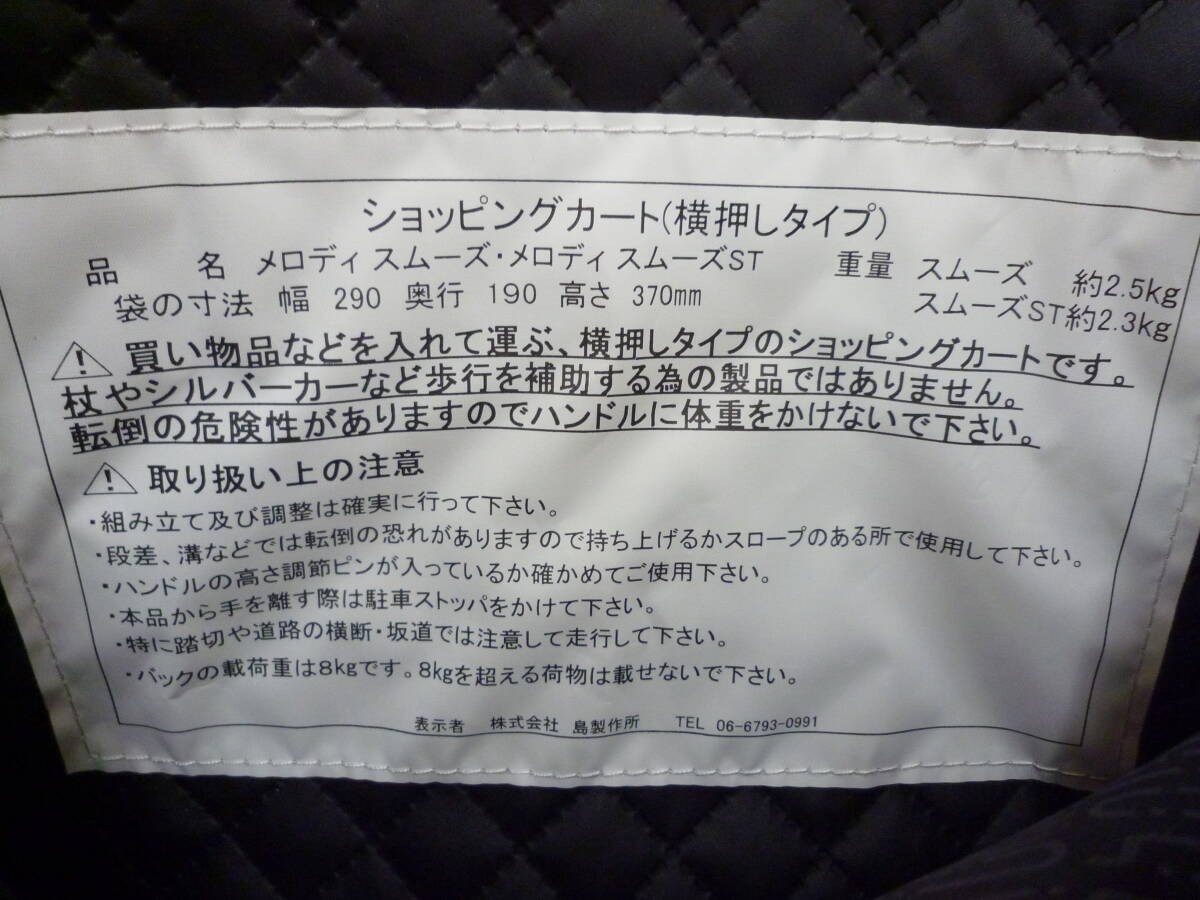 ショッピングカート(横押しタイプ)
品 名 メロディ スムーズ・メロディ スムーズST 重量 スムーズ 約2.5kg
袋の寸法 幅 290 奥行 190 高さ 370mm スムーズST約2.3kg
買い物品などを入れて運ぶ、横押しタイプのショッピングカートです。
杖やシルバーカーなど歩行を補助する為の製品ではありません。
転倒の危険性がありますのでハンドルに体重をかけないで下さい。
取り扱い上の注意
・組み立て及び調整は確実に行って下さい。
・段差、溝などでは転倒の恐れがありますので持ち上げるかスロープのある所で使用して下さい。
・ハンドルの高さ調節ピンが入っているか確かめてご使用下さい。
・本品から手を離す際は駐車ストッパをかけて下さい。
・特に踏切や道路の横断・坂道では注意して走行して下さい。
・バックの載荷重は8kgです。8kgを超える荷物は載せないで下さい。
表示者 株式会社 島製作所 TEL 06-6793-0991